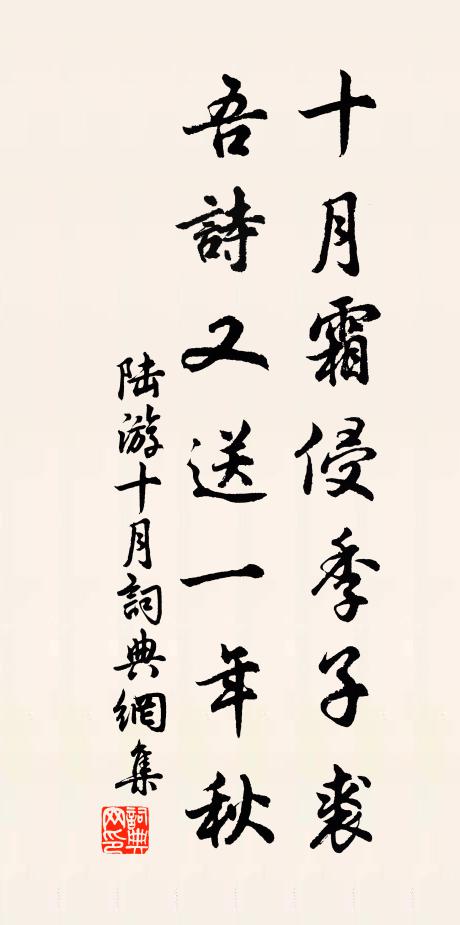 十月霜侵季子裘
吾詩又送一年秋
陆游十月詞典網集
詞典网印